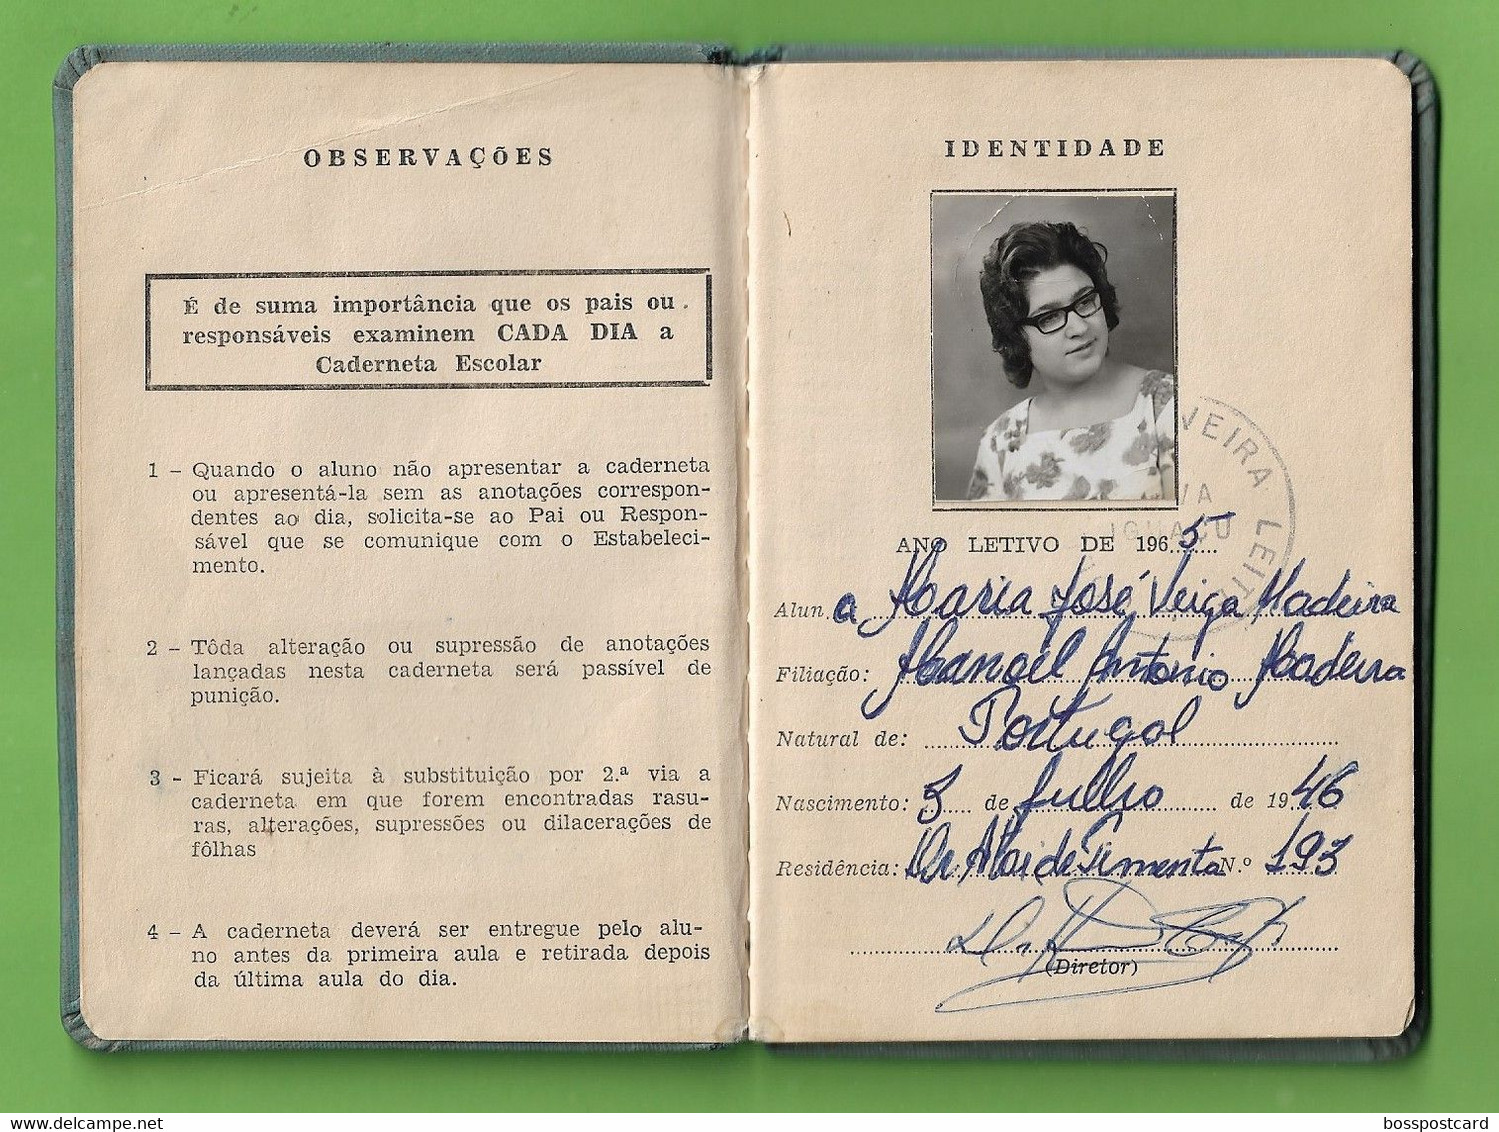 OBSERVAÇÕES
É de suma importância que os pais ou
responsáveis examinem CADA DIA a
Caderneta Escolar
1 – Quando o aluno não apresentar a caderneta
ou apresentá-la sem as anotações correspon-
dentes ao dia, solicita-se ao Pai ou Respon-
sável que se comunique com o Estabeleci-
mento.
2 – Tôda alteração ou supressão de anotações
lançadas nesta caderneta será passível de
punição.
3 - Ficará sujeita à substituição por 2.ª via a
caderneta em que forem encontradas rasu-
ras, alterações, supressões ou dilacerações de
fôlhas
4 – A caderneta deverá ser entregue pelo alu-
no antes da primeira aula e retirada depois
da última aula do dia.
IDENTIDADE
VEIRA LEITE
VA
IGUAÇU
ANO LETIVO DE 1965
Alun a Maria José Veiga Madeira
Filiação: Manoel Antonio Madeira
Natural de: Portugal
Nascimento: 3 de Julho de 1946
Residência: Dr. Ataide Pimenta N.º 193
(Diretor)
bosspostcard